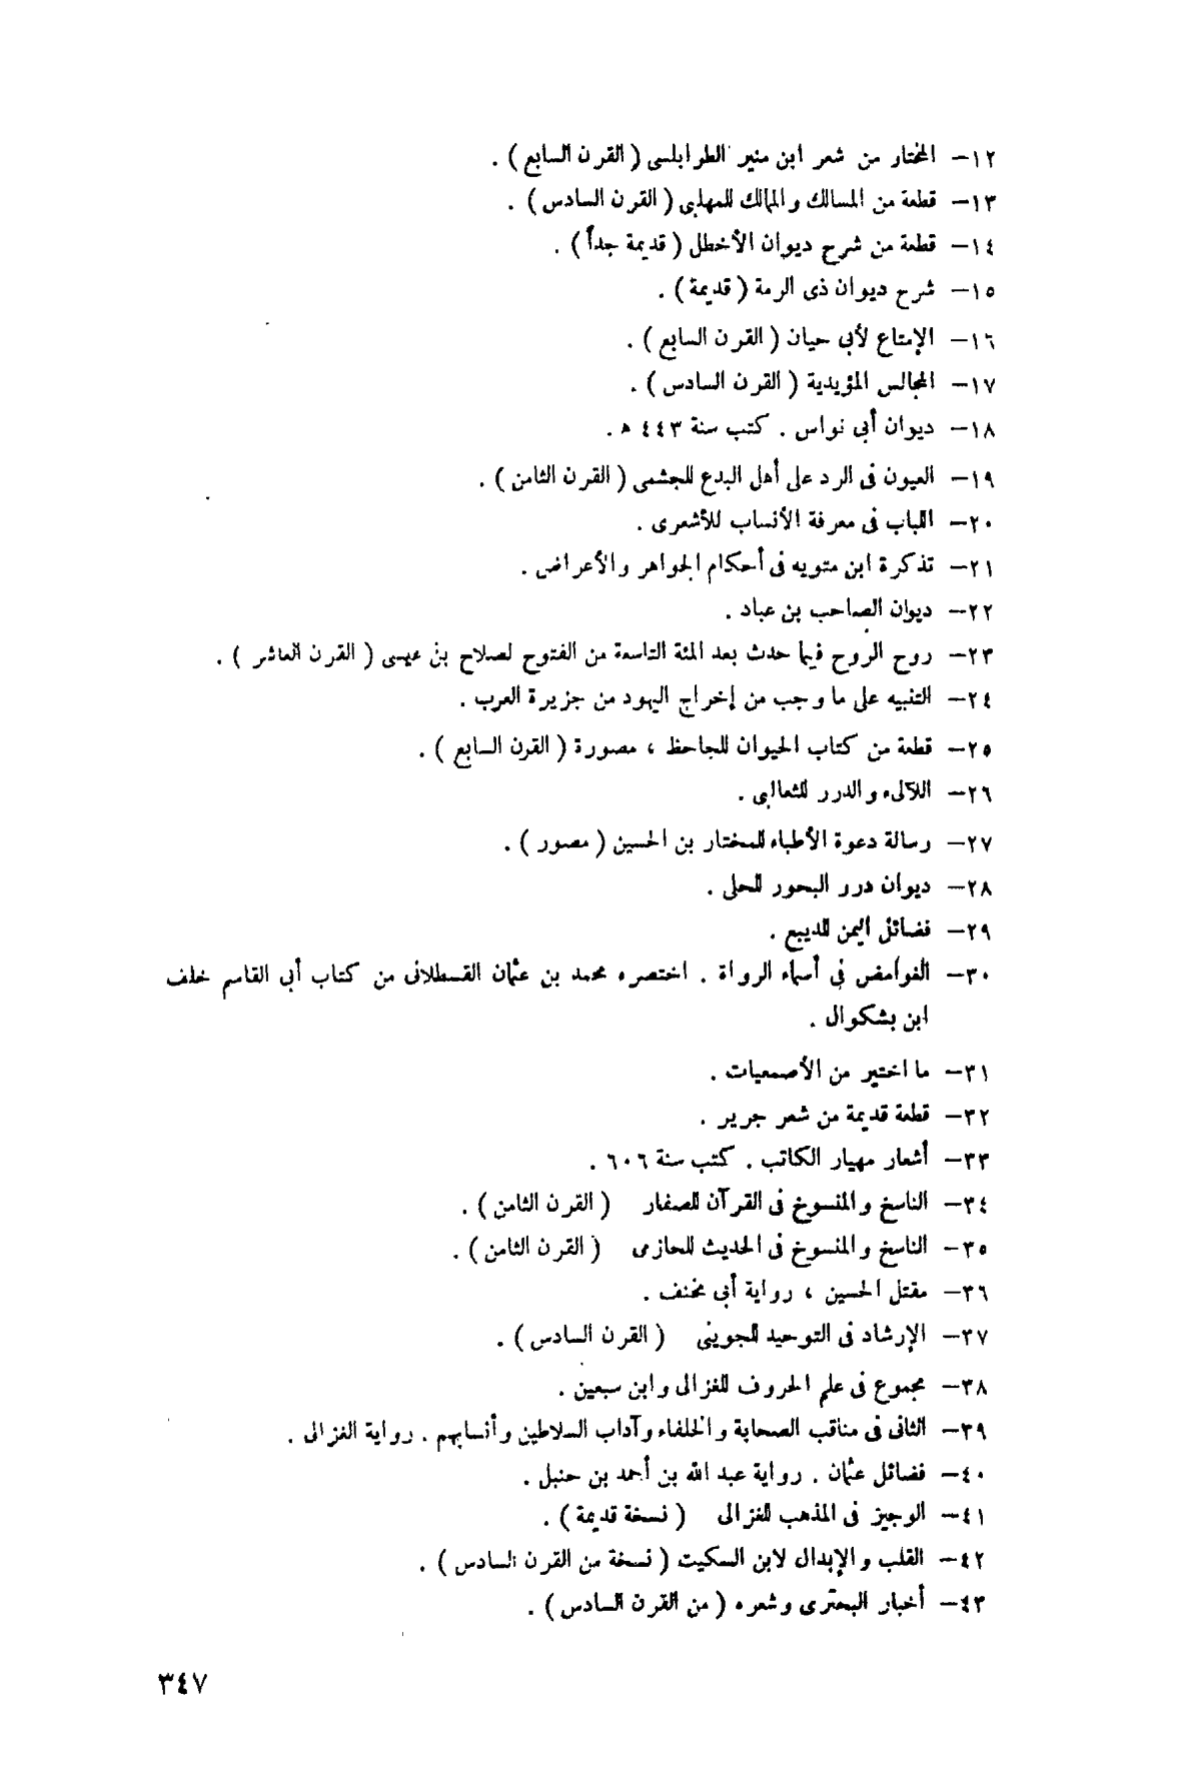 ١٢ – المختار من شعر ابن منير الطرابلسى ( القرن السابع ) .
١٣ – قطعة من المسالك والممالك للمهلبى ( القرن السادس ) .
١٤ – قطعة من شرح ديوان الأخطل ( قديمة جداً ) .
١٥ – شرح ديوان ذى الرمة ( قديمة ) .
١٦ – الإمتاع لأبى حيان ( القرن السابع ) .
١٧ – المجالس المؤيدية ( القرن السادس ) .
١٨ – ديوان أبى نواس . كتب سنة ٤٤٣ ه .
١٩ – العيون فى الرد على أهل البدع للجشمى ( القرن الثامن ) .
٢٠ – اللباب فى معرفة الأنساب للأشعرى .
٢١ – تذكرة ابن متويه فى أحكام الجواهر والأعراض .
٢٢ – ديوان الصاحب بن عباد .
٢٣ – روح الروح فيما حدث بعد المئة التاسعة من الفتوح لصلاح بن عيسى ( القرن العاشر ) .
٢٤ – التنبيه على ما وجب من إخراج اليهود من جزيرة العرب .
٢٥ – قطعة من كتاب الحيوان للجاحظ ، مصورة ( القرن السابع ) .
٢٦ – اللآلىء والدرر للثعالبى .
٢٧ – رسالة دعوة الأطباء للمختار بن الحسين ( مصور ) .
٢٨ – ديوان درر البحور للحلى .
٢٩ – فضائل اليمن للديبع .
٣٠ – الغوامض فى أسماء الرواة . اختصره محمد بن عثمان القسطلانى من كتاب أبى القاسم خلف
ابن بشكوال .
٣١ – ما اختير من الأصمعيات .
٣٢ – قطعة قديمة من شعر جرير .
٣٣ – أشعار مهيار الكاتب . كتب سنة ٦٠٦ .
٣٤ – الناسخ والمنسوخ فى القرآن للصفار ( القرن الثامن ) .
٣٥ – الناسخ والمنسوخ فى الحديث للحازمى ( القرن الثامن ) .
٣٦ – مقتل الحسين ، رواية أبى مخنف .
٣٧ – الإرشاد فى التوحيد للجوينى ( القرن السادس ) .
٣٨ – مجموع فى علم الحروف للغزالى وابن سبعين .
٣٩ – الثانى فى مناقب الصحابة والخلفاء وآداب السلاطين وأنسابهم . رواية الغزالى .
٤٠ – فضائل عثمان . رواية عبد الله بن أحمد بن حنبل .
٤١ – الوجيز فى المذهب للغزالى ( نسخة قديمة ) .
٤٢ – القلب والإبدال لابن السكيت ( نسخة من القرن السادس ) .
٤٣ – أخبار البحترى وشعره ( من القرن السادس ) .
٣٤٧